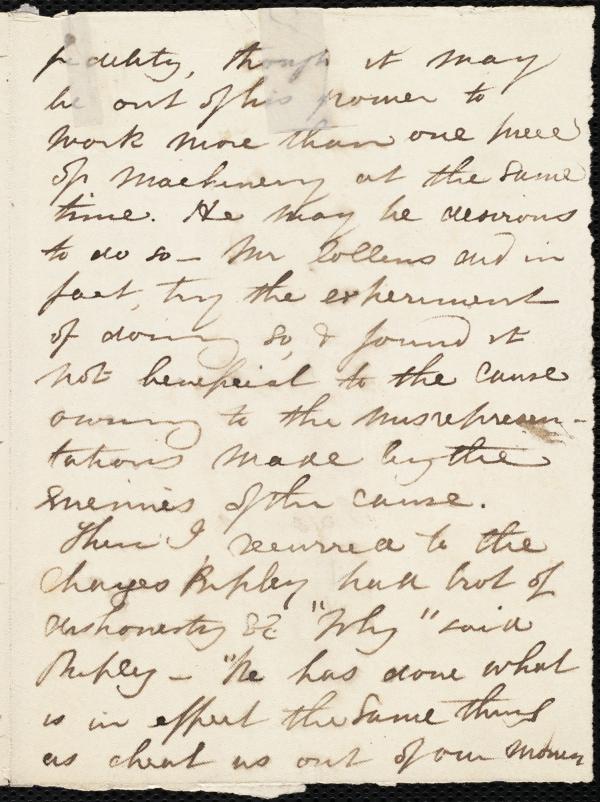 fidelity, though it may
be out of his power to
work more than one piece
of machinery at the same
time. He may be desirous
to do so - Mr Collens did in
fact, try the experiment
of doing so, & found it
not beneficial to the cause
owing to the misrepresen-
tations made by the
enemies of the cause.
Then I recurred to the
charges Ripley had brot of
dishonesty &c "Why" said
Ripley - "He has done what
is in effect the same thing
as cheat us out of our money